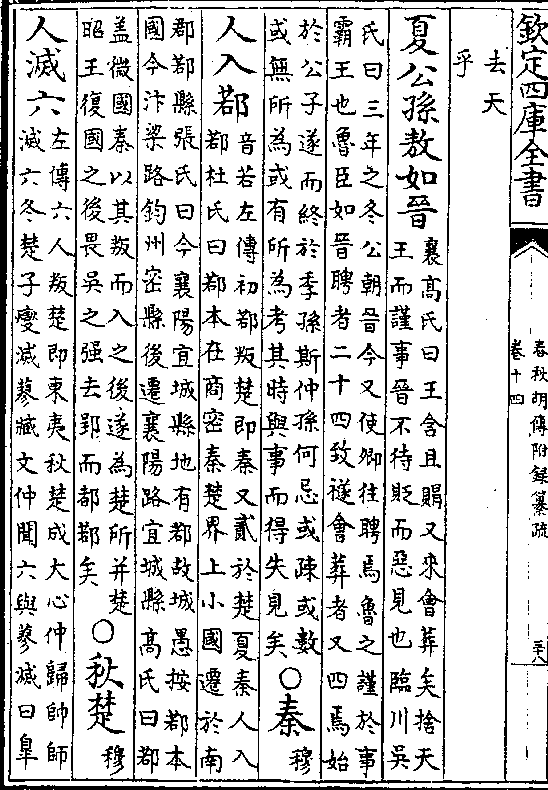 欽定四庫全書
春秋胡傳附録纂疏
卷十四
三十八
去天
乎
夏公孫敖如晉
襄高氏曰王含且賵又來會葬矣捨天
王而謹事晉不待貶而惡見也臨川吳
氏曰三年之冬公朝晉今又使卿往聘焉魯之謹於事
霸王也魯臣如晉聘者二十四致襚會葬者又四焉始
於公子遂而終於季孫斯仲孫何忌或疎或數
或無所為或有所為考其時與事而得失見矣
○秦
穆
人入鄀
音若左傳初鄀叛楚即秦又貳於楚夏秦人入
鄀杜氏曰鄀本在商密秦楚界上小國遷於南
郡鄀縣張氏曰今襄陽宜城縣地有鄀故城愚按鄀本
國今汴梁路鈞州密縣後遷襄陽路宜城縣高氏曰鄀
盖微國秦以其叛而入之後遂為楚所并楚
昭王復國之後畏吳之强去郢而都鄀矣
○秋楚
穆
人滅六
左傳六人叛楚即東夷秋楚成大心仲歸帥師
滅六冬楚子燮滅蓼臧文仲聞六與蓼滅曰臯